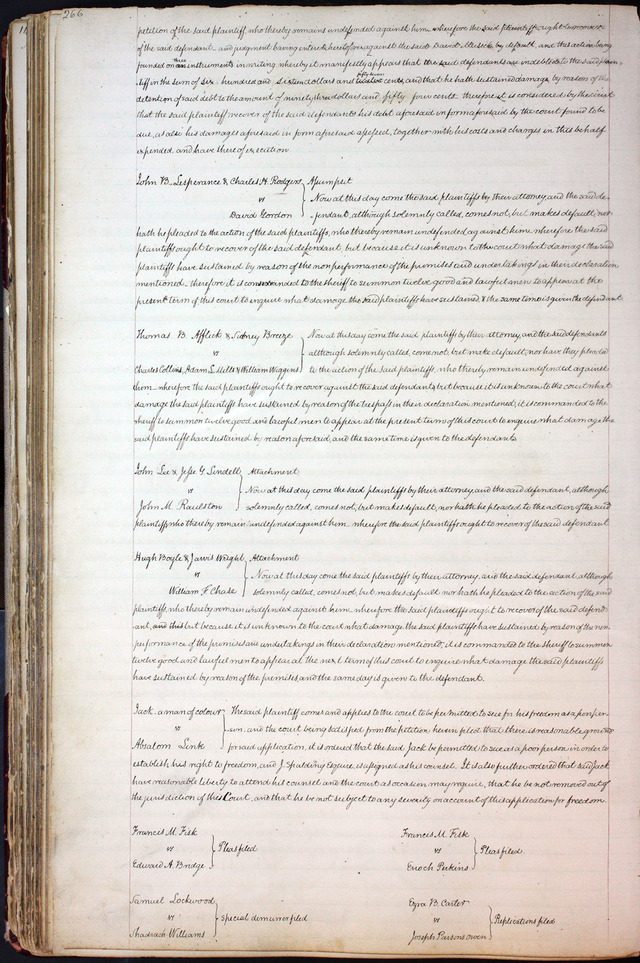 266
petition of the said plaintiff, who thereby remains undefended against him wherefore the said plaintiff ought to recover
of the said defendant and judgment having interlocutory herein against the said David Musick by default, and this action being
founded on three instruments in writing whereby it manifestly appears that the said defendants are indebted to the said plain-
tiff in the sum of six hundred and sixteen dollars and fifty seven cents, and that he hath sustained damage by reason of the
detention of said debt to the amount of ninety three dollars and fifty four cents therefore it is considered by the court
that the said plaintiff recover of the said defendants his debt aforesaid in form aforesaid by the court found to be
due, as also his damages aforesaid in form aforesaid assessed, together with his costs and charges in this behalf
expended, and have thereof execution
John B. Lesperance & Charles H. Rodgers
vs
David Gordon
Assumpsit
Now at this day come the said plaintiffs by their attorney, and the said de-
fendant, although solemnly called, comes not, but makes default, nor
hath he pleaded to the action of the said plaintiffs, who thereby remain undefended against him wherefore the said
plaintiffs ought to recover of the said defendant, but because it is unknown to the court what damage the said
plaintiffs have sustained by reason of the non performance of the promises and undertakings in their declaration
mentioned, therefore it is commanded to the sheriff to summon twelve good and lawful men to appear at the
present term of this court to enquire what damage the said plaintiffs have sustained & the same time is given the defendant
Thomas B Afflick & Sidney Breeze
vs
Charles Collins, Adam L Mills & William Wiggins
Now at this day come the said plaintiffs by their attorney, and the said defendants
although solemnly called, come not, but make default, nor have they pleaded
to the action of the said plaintiffs, who thereby remain undefended against
them wherefore the said plaintiffs ought to recover against the said defendants but because it is unknown to the court what
damage the said plaintiffs have sustained by reason of the trespass in their declaration mentioned, it is commanded to the
sheriff to summon twelve good and lawful men to appear at the present term of this court to enquire what damage the
said plaintiffs have sustained by reason aforesaid, and the same time is given to the defendants
John Lee & Jesse G. Lindell
vs
John M. Raulston
Attachment
Now at this day come the said plaintiffs by their attorney, and the said defendant, although
solemnly called, comes not, but makes default, nor hath he pleaded to the action of the said
plaintiffs who thereby remain undefended against him wherefore the said plaintiffs ought to recover of the said defendant
Hugh Boyle & Jarvis Wright
vs
William F Chase
Attachment
Now at this day come the said plaintiffs by their attorney, and the said defendant although
solemnly called, comes not, but makes default nor hath he pleaded to the action of the said
plaintiffs who thereby remain undefended against him wherefore the said plaintiffs ought to recover of the said defend-
ant, and this but because it is unknown to the court what damage the said plaintiffs have sustained by reason of the non
performance of the promises and undertakings in their declaration mentioned, it is commanded to the sheriff to summon
twelve good and lawful men to appear at the next term of this court to enquire what damage the said plaintiffs
have sustained by reason of the premises and the same day is given to the defendant.
Jack a man of colour
vs
Absalom Link
The said plaintiff comes and applies to the court to be permitted to sue for his freedom as a poor per-
son, and the court being satisfied from the petition herein filed that there is reasonable ground
for said application, it is ordered that the said Jack be permitted to sue as a poor person in order to
establish his right to freedom, and J. Spalding Esquire, is assigned as his counsel. It is also further ordered that said Jack
have reasonable liberty to attend his counsel and the court as occasion may require, that he be not removed out of
the jurisdiction of this Court, and that he be not subject to any severity on account of this application for freedom.
Francis M. Fisk
vs
Edward A. Bridge
Pleas filed
Francis M. Fisk
vs
Enoch Perkins
Pleas filed.
Samuel Lockwood
vs
Shadrach Williams
special demurrer filed
Ezra B. Carter
vs
Joseph Parsons Owen
Replications filed